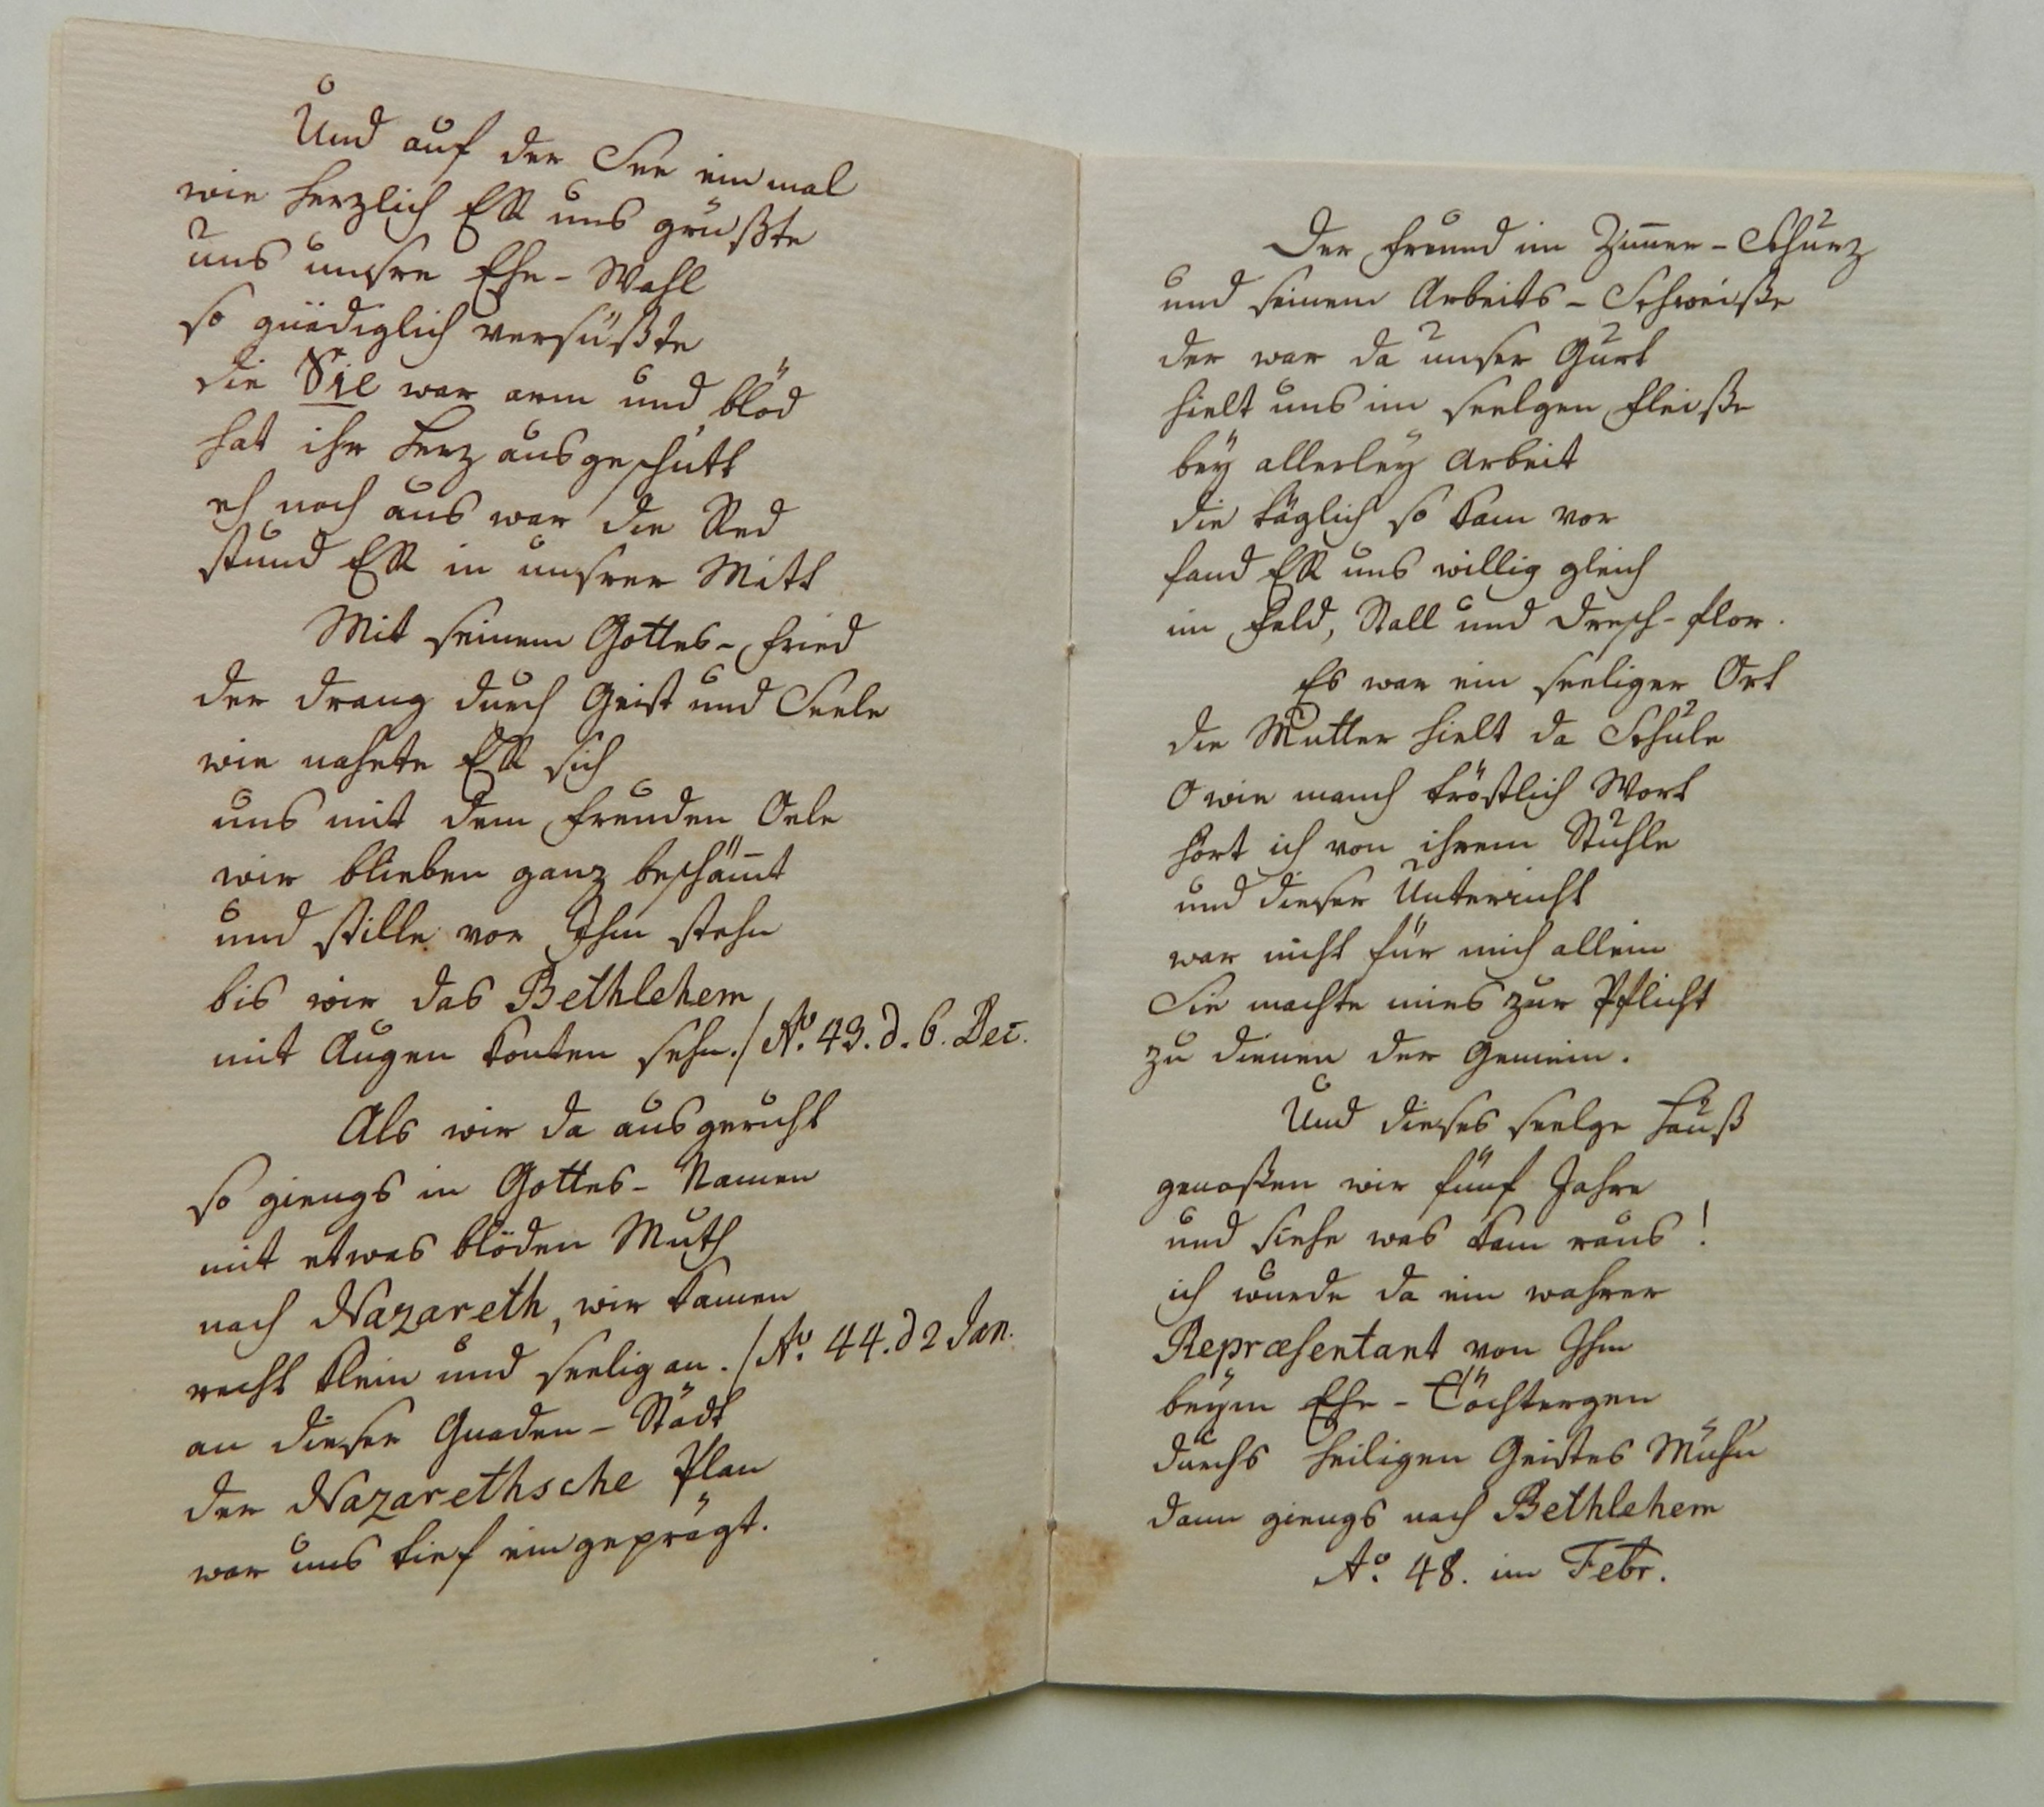 Und auf der See einmal
wie herzlich ER uns grüßte
uns unsre Ehe-Wahl
so gnädiglich versüßte
die Sie war arm und blöd
hat ihr Herz ausgeschütt
eh noch aus war die Red
stund ER in unsrer Mitt
Mit seinem Gottes-Fried
der drang durch Geist und Seele
wie nahete ER sich
uns mit dem Freuden Oele
wir blieben ganz beschämt
und stille vor Ihm stehn
bis wir das Bethlehem
mit Augen konten sehn./ Ao. 43. d. 6. Dec.
Als wir da ausgeruht
so giengs in Gottes-Namen
mit etwas blöden Muth
nach Nazareth, wir kamen
recht klein und seelig an./ Ao. 44. d 2 Jan.
an dieser Gnaden-Städt
der Nazarethsche Plan
war uns tief eingeprägt.
Der Freund im Zimmer-Schurz
und seinem Arbeits-Schweiße
der war da unser Gurt
hielt uns im seelgen Fleiße
bey allerley Arbeit
die täglich so kam vor
fand ER uns willig gleich
im Feld, Stall und Dresch-flor.
Es war ein seeliger Ort
die Mutter hielt da Schule
O wie manch tröstlich Wort
hört ich von ihrem Stuhle
und dieser Unterricht
war nicht für mich allein
Sie machte mirs zur Pflicht
zu dienen der Gemein.
Und dieses seelge Hauß
genoßen wir fünf Jahre
und siehe was kam raus!
ich wurde da ein wahrer
Repræsentant von Ihm
beym Ehe-Töchtergen
durchs heiligen Geistes Mühn
dann giengs nach Bethlehem
Ao. 48. im Febr.